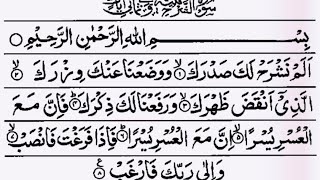 بِسْمِ اللهِ الرَّحْمٰنِ الرَّحِيْمِ
اَلَمْ نَشْرَحْ لَكَ صَدْرَكَ ۙ۱ وَوَضَعْنَا عَنْكَ وِزْرَكَ ۙ۲
الَّذِيْۤ اَنْقَضَ ظَهْرَكَ ۙ۳ وَرَفَعْنَا لَكَ ذِكْرَكَ ؕ۴ فَاِنَّ مَعَ
الْعُسْرِ يُسْرًا ۙ۵ اِنَّ مَعَ الْعُسْرِ يُسْرًا ؕ۶ فَاِذَا فَرَغْتَ فَانْصَبْ ۙ۷
وَاِلٰى رَبِّكَ فَارْغَبْ ۸